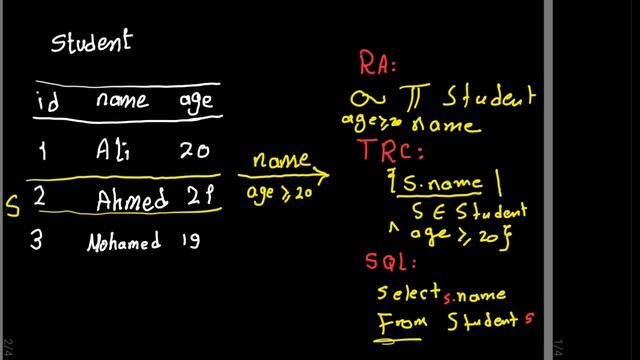 Student
id name age
1 Ali 20
2 Ahmed 21
3 Mohamed 19
S
name
age ≥ 20
RA:
σ π Student
age ≥ 20 name
TRC:
{ S.name |
S ∈ Student
^ age ≥ 20 }
SQL:
Select s.name
From Student s
2/4
1/4